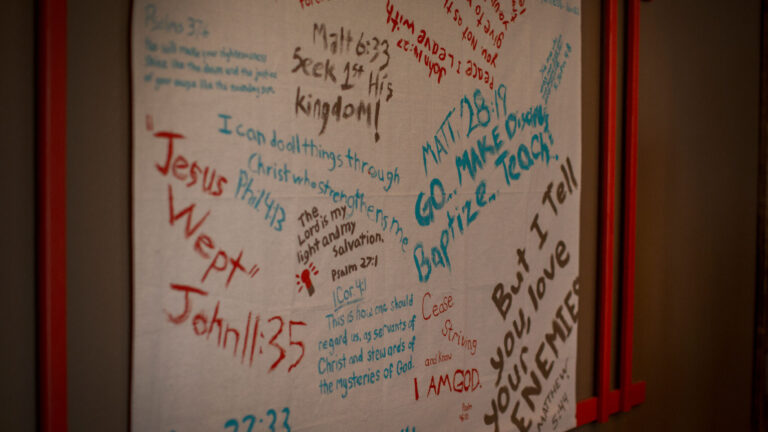 Psalms 37:6
He will make your righteousness
shine like the dawn and the justice
of your cause like the noonday sun.
Matt 6:33
Seek 1st His
kingdom!
John 14:27
Peace I Leave with
you
give to you
you Not as th
MATT. 28:19
GO... MAKE Disciples
Baptize... Teach!
I can do all things through
Christ who strengthens me
Phil 4:13
"Jesus
Wept"
John 11:35
The
Lord is my
light and my
Salvation.
Psalm 27:1
1 Cor 4:1
This is how one should
regard us, as servants of
Christ and stewards of
the mysteries of God.
Cease
Striving
and know
I AM GOD.
But I Tell
you, love
your
ENEMIES
MATTHEW
5:44
27:33